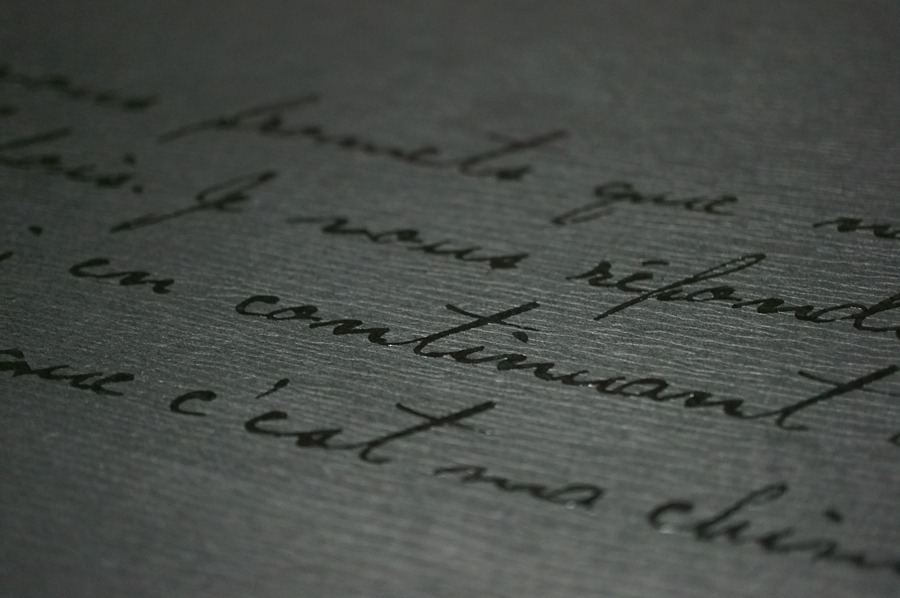 permets que
Je vous répond
en continuant
que c'est ma chim